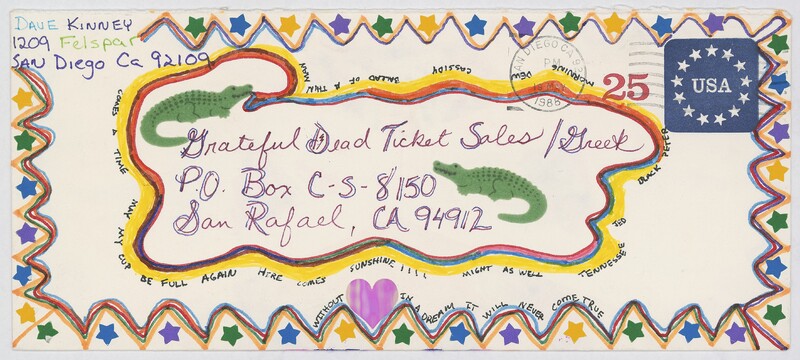 DAVE KINNEY
1209 Felspar
SAN Diego Ca 92109
SAN DIEGO CA
PM
25
USA
BALLAD OF A THIN MAN
CASSIDY
MORNING DEW
Grateful Dead Ticket Sales / Greek
P.O. Box C-S-8150
San Rafael, CA 94912
BLACK PETER
TENNESSEE JED
COMES A TIME
MAY MY CUP BE FULL AGAIN HERE COMES SUNSHINE !!!! MIGHT AS WELL
WITHOUT IN A DREAM IT WILL NEVER COME TRUE